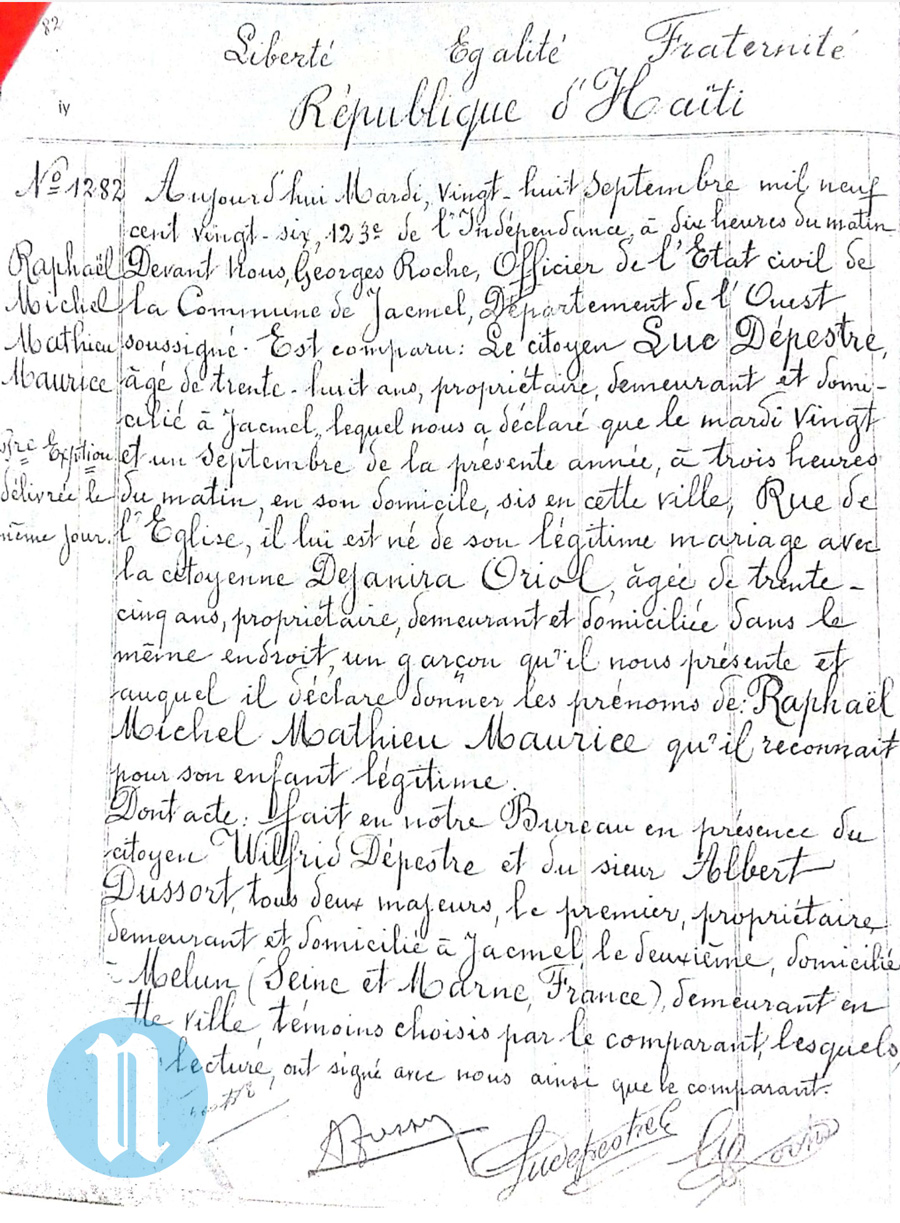 82
Liberté Egalité Fraternité
République d'Haïti
iv
Nº 1282
Raphaël
Michel
Mathieu
Maurice
Exption
délivrée le
même jour.
Aujourd'hui Mardi, vingt-huit Septembre mil neuf
cent vingt-six, 123e de l'Indépendance, à dix heures du matin
Devant Nous, Georges Roche, Officier de l'Etat civil de
la Commune de Jacmel, Département de l'Ouest
soussigné. Est comparu: Le citoyen Luc Dépestre,
âgé de trente-huit ans, propriétaire, demeurant et domi-
cilié à Jacmel, lequel nous a déclaré que le mardi vingt
et un Septembre de la présente année, à trois heures
du matin, en son domicile, sis en cette ville, Rue de
l'Eglise, il lui est né de son légitime mariage avec
la citoyenne Dejanira Oriol, âgée de trente-
cinq ans, propriétaire, demeurant et domiciliée dans le
même endroit, un garçon qu'il nous présente et
auquel il déclare donner les prénoms de: Raphaël
Michel Mathieu Maurice qu'il reconnait
pour son enfant légitime.
Dont acte: fait en notre Bureau en présence du
citoyen Wilfrid Dépestre et du sieur Albert
Dussort, tous deux majeurs, le premier, propriétaire
demeurant et domicilié à Jacmel, le deuxième, domicilié
Melun (Seine et Marne, France), demeurant en
tte ville, témoins choisis par le comparant, lesquels,
lecture, ont signé avec nous ainsi que le comparant.
n
Lucdepestre